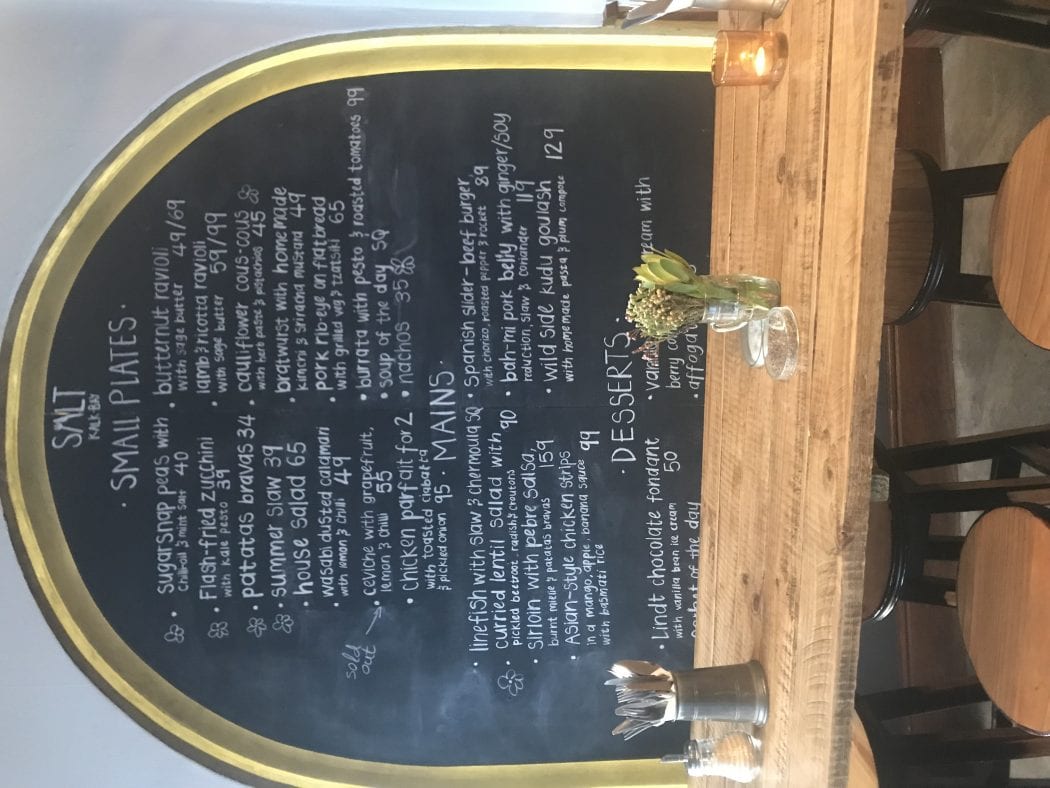 SALT
KALK-BAY
· SMALL PLATES ·
sugarsnap peas with
chilli-oil & mint salt 40
flash-fried zucchini
with kale pesto 39
· patatas bravas 34
· summer slaw 39
· house salad 65
· wasabi dusted calamari
with lemon & chilli 49
sold out
· ceviche with grapefruit,
lemon & chilli 55
· chicken parfait for 2
with toasted ciabatta
& pickled onion 95
· butternut ravioli
with sage butter 49/69
lamb & ricotta ravioli
· with sage butter 59/99
· cauliflower cous-cous
with herb paste & pistachios 45
· bratwurst with homemade
kimchi & sriracha mustard 49
· pork rib-eye on flatbread
with grilled veg & tzatsiki 65
· burrata with pesto & roasted tomatoes 99
· soup of the day SQ
· nachos 35
· MAINS ·
· linefish with slaw & chermoula SQ
· curried lentil salad with
pickled beetroot, radish & croutons 90
· sirloin with pebre salsa,
burnt mielie & patatas bravas 159
· Asian-style chicken strips
in a mango, apple, banana sauce 99
with basmati rice
· Spanish slider - beef burger,
with chorizo, roasted pepper & rocket 89
· bah-mi pork belly with ginger/soy
reduction, slaw & coriander 119
· wild side kudu goulash
with homemade pasta & plum compote 129
· DESSERTS ·
· Lindt chocolate fondant
with vanilla bean ice cream 50
of the day
with
berry
· affoga